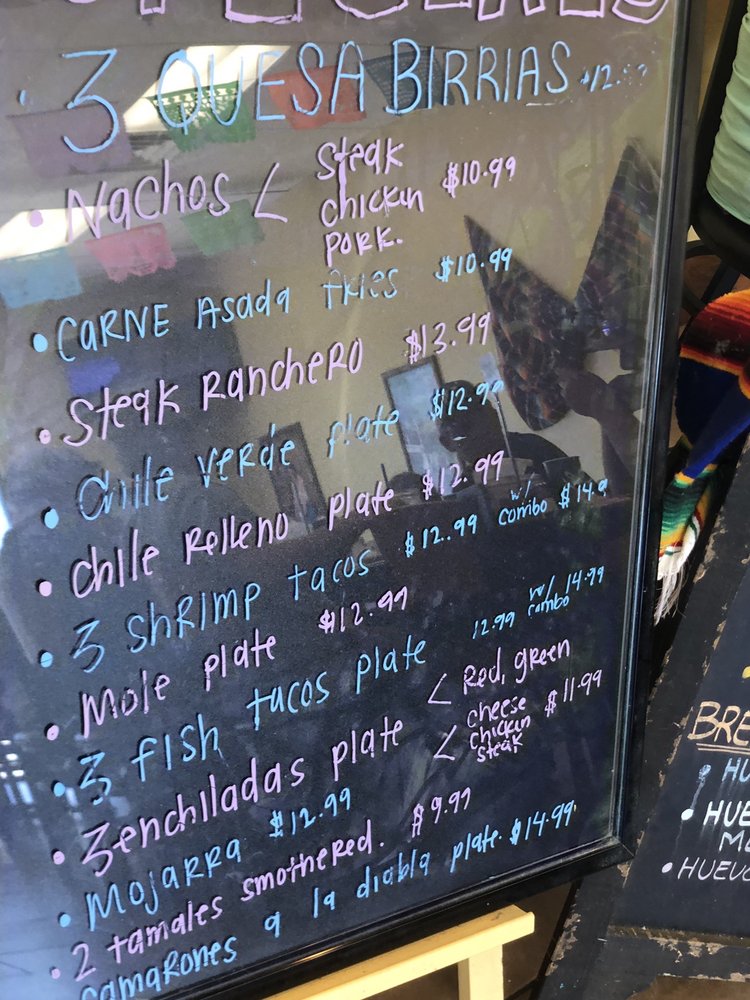 SPECIALS
3 QUESA BIRRIAS $12.99
• Nachos < Steak chickin pork. $10.99
• CARNE Asada fries $10.99
• Steak Ranchero $13.99
• Chile Verde plate $12.99
• Chile Relleno plate $12.99
• 3 Shrimp tacos $12.99 w/ combo $14.9
• Mole plate $12.99
• 3 fish tacos plate 12.99 w/ combo 14.99
• 3 enchiladas plate < Red, green < cheese chickin steak $11.99
• Mojarra $12.99
• 2 tamales smothered. $9.99
camarones a la diabla plate. $14.99
BRE
• HU
• HUE
ME
• HUEVO